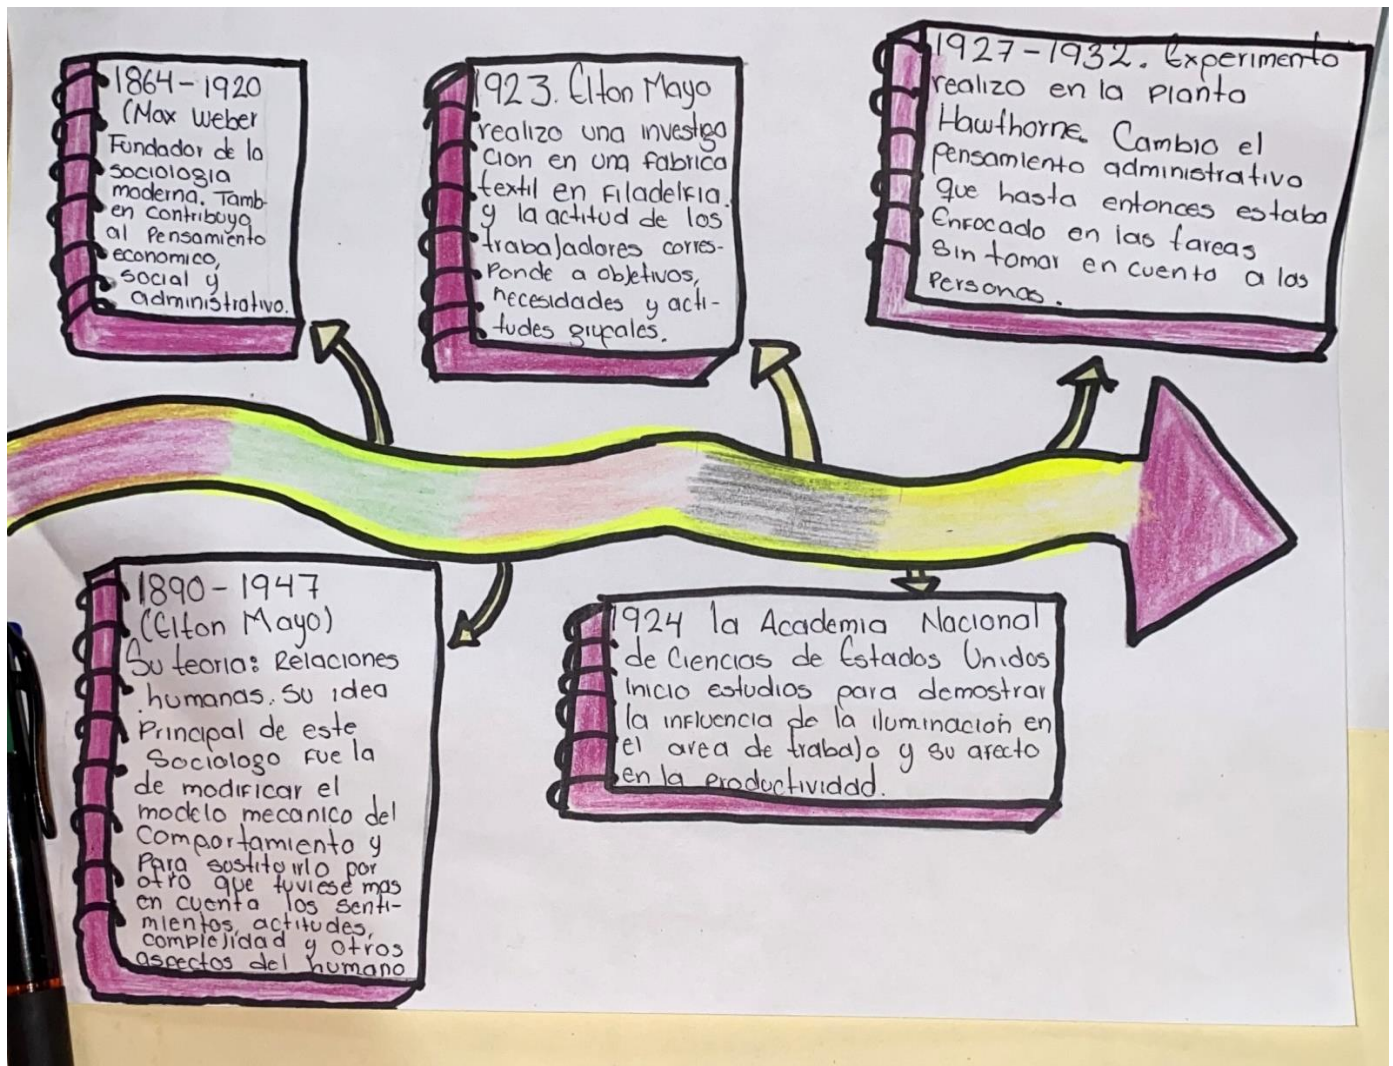 1864-1920
(Max Weber
Fundador de la
sociologia
moderna. Tamb-
en contribuyo
al Pensamiento
economico,
social y
administrativo.
1923. Elton Mayo
realizo una investiga
cion en una fabrica
textil en Filadelfia.
y la actitud de los
trabajadores corres-
Ponde a objetivos,
necesidades y acti-
tudes grupales.
1927-1932. Experimento
realizo en la Planta
Hawthorne. Cambio el
pensamiento administrativo
que hasta entonces estaba
Enfocado en las tareas
Sin tomar en cuento a las
Personas.
1890-1947
(Elton Mayo)
Su teoria: Relaciones
humanas. Su idea
Principal de este
Sociologo fue la
de modificar el
modelo mecanico del
Comportamiento y
Para sostituirlo por
otro que tuviese mas
en cuenta los senti-
mientos, actitudes,
complejidad y otros
aspectos del humano
1924 la Academia Nacional
de Ciencias de Estados Unidos
inicio estudios para demostrar
la influencia de la iluminacion en
el area de trabajo y su afecto
en la productividad.